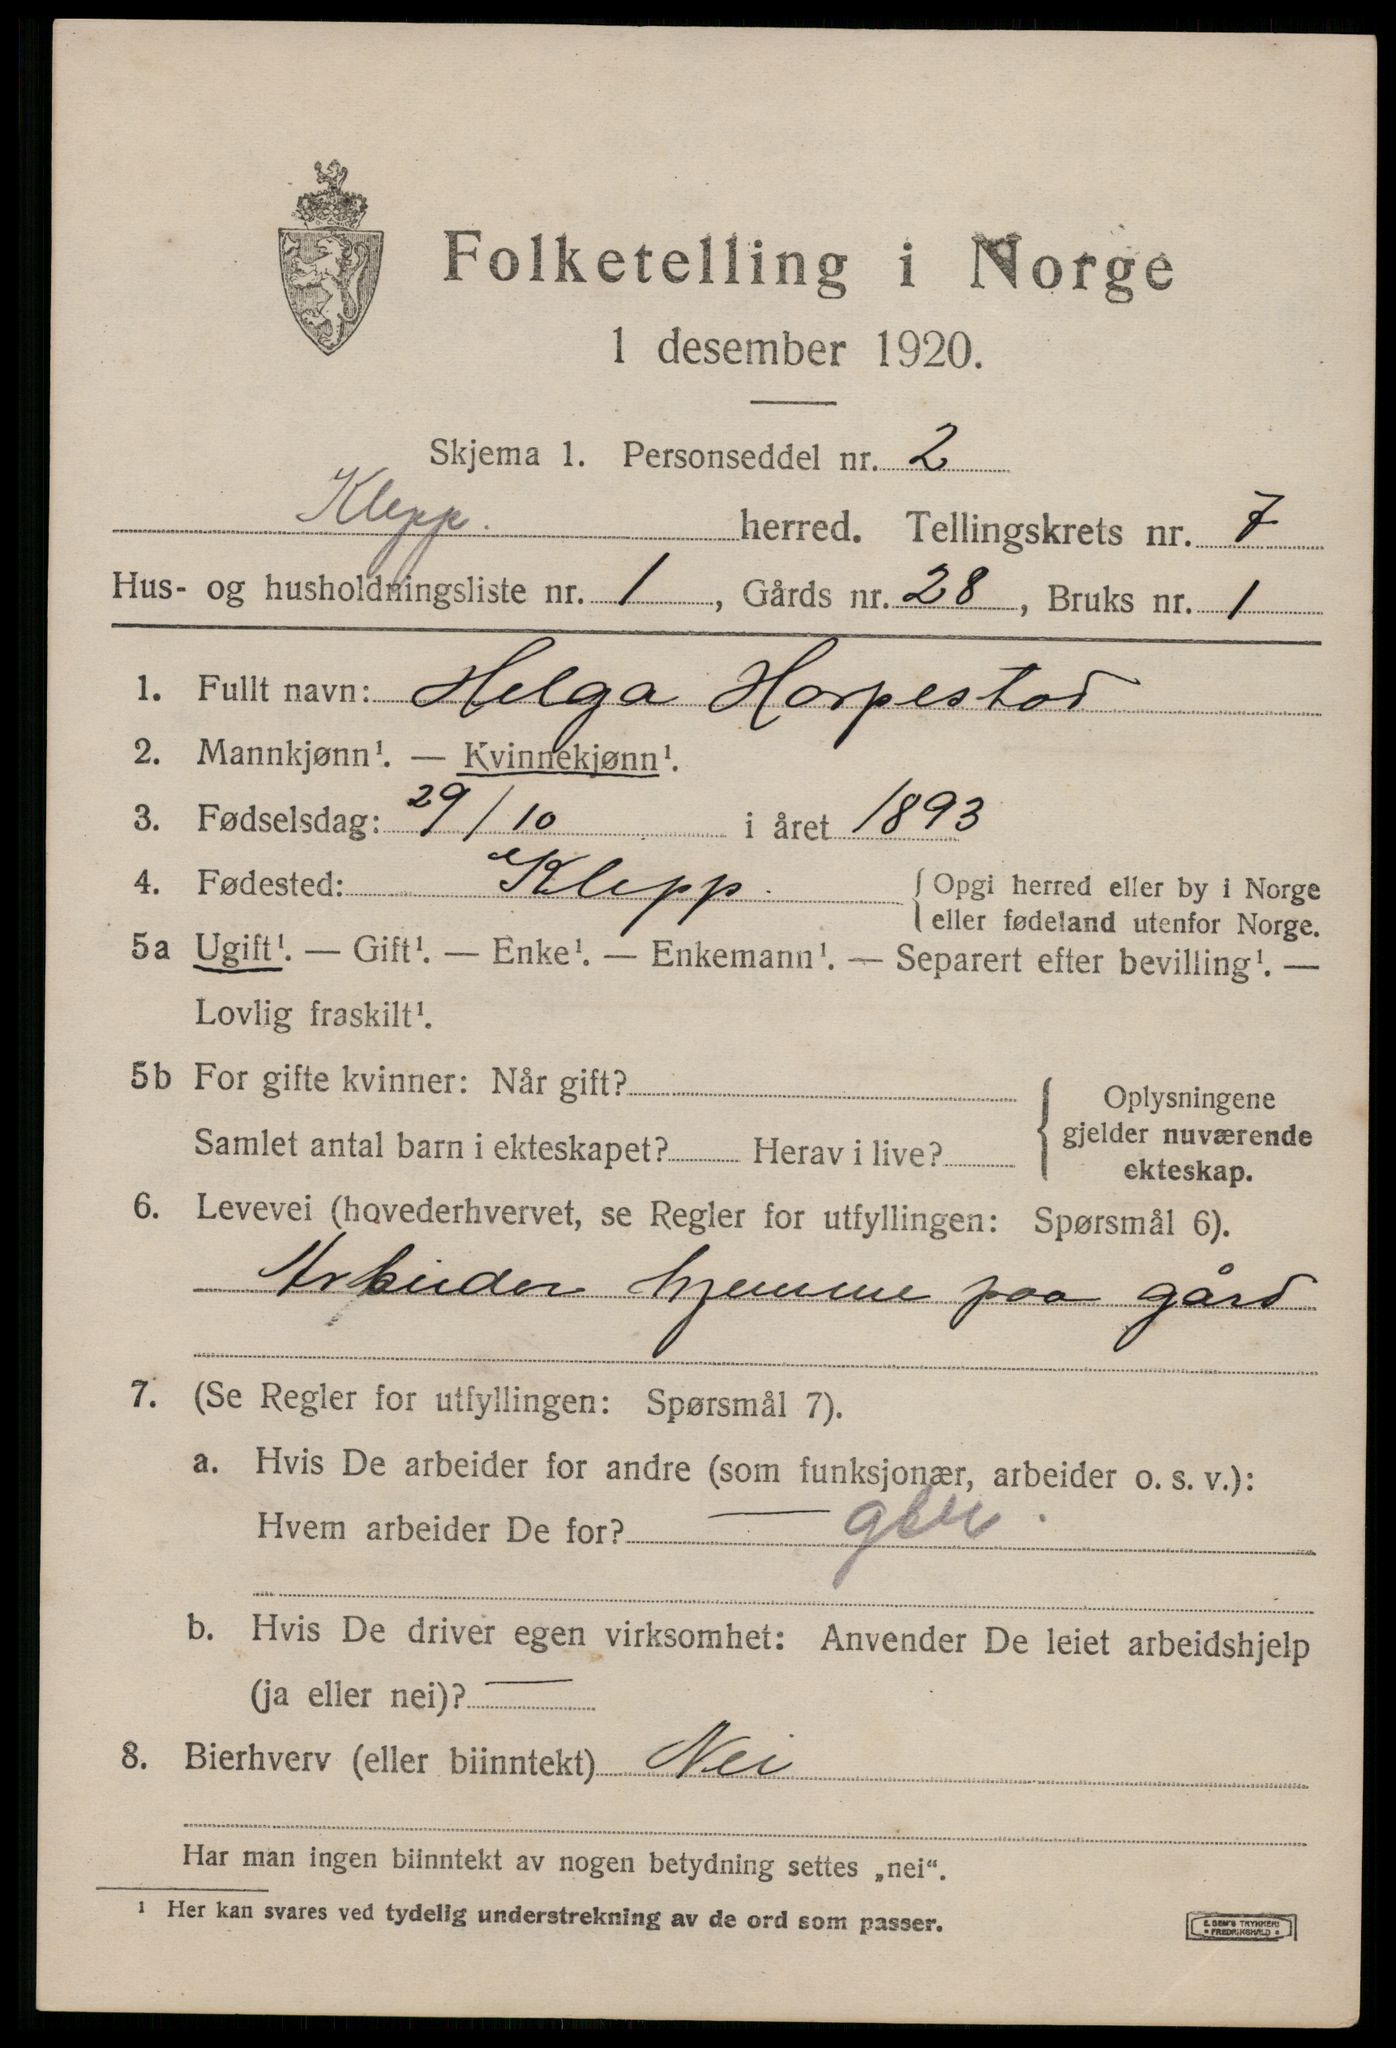 Folketelling i Norge
1 desember 1920.
Skjema 1. Personseddel nr. 2
Klepp. herred. Tellingskrets nr. 7
Hus- og husholdningsliste nr. 1, Gårds nr. 28, Bruks nr. 1
1. Fullt navn: Helga Horpestad
2. Mannkjønn¹. — Kvinnekjønn¹.
3. Fødselsdag: 29/10 i året 1893
4. Fødested: Klepp. { Opgi herred eller by i Norge
eller fødeland utenfor Norge.
5a Ugift¹. — Gift¹. — Enke¹. — Enkemann¹. — Separert efter bevilling¹. —
Lovlig fraskilt¹.
5b For gifte kvinner: Når gift?
Samlet antal barn i ekteskapet? Herav i live?
Oplysningene
gjelder nuværende
ekteskap.
6. Levevei (hovederhvervet, se Regler for utfyllingen: Spørsmål 6).
Arbeider hjemme paa gård
7. (Se Regler for utfyllingen: Spørsmål 7).
a. Hvis De arbeider for andre (som funksjonær, arbeider o. s. v.):
Hvem arbeider De for? —
b. Hvis De driver egen virksomhet: Anvender De leiet arbeidshjelp
(ja eller nei)? —
8. Bierhverv (eller biinntekt) Nei
Har man ingen biinntekt av nogen betydning settes „nei“.
¹ Her kan svares ved tydelig understrekning av de ord som passer.
E. SEM'S TRYKKERI
• FREDRIKSHALD •